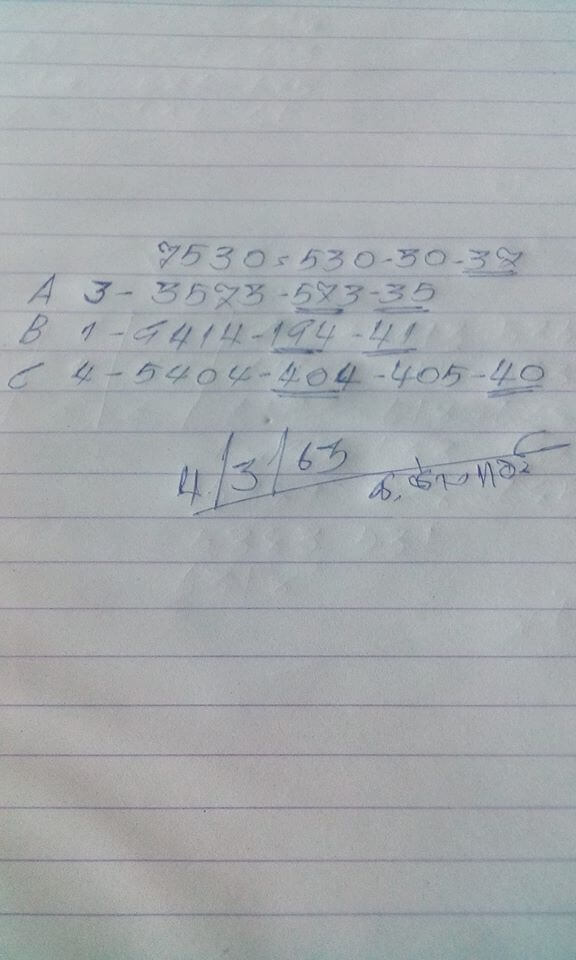 7530 = 530-30-37
A 3-3573-573-35
B 1-9414-194-41
C 4-5404-404-405-40
4/3/63